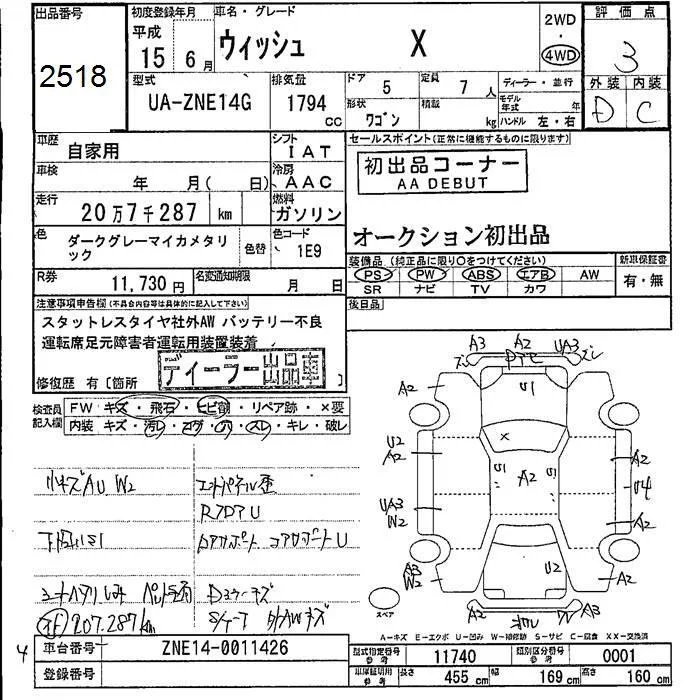 出品番号
2518
初度登録年月
平成
15 6月
車名・グレード
ウィッシュ X
2WD
・
4WD
評価点
3
外装 内装
D C
型式
UA-ZNE14G
排気量
1794 cc
ドア 5
形状 ワゴン
定員 7 人
積載 kg
ディーラー・並行
モデル年式 年
ハンドル 左・右
車歴
自家用
シフト
IAT
車検
年 月( 日)
冷房
AAC
走行
20万7千287 km
燃料
ガソリン
色
ダークグレーマイカメタリック
色替
色コード
1E9
R券
11,730円
名変通知期限
月 日
セールスポイント(正常に機能するものに限ります)
初出品コーナー
AA DEBUT
オークション初出品
装備品(純正品に限り○をつけてください)
新車保証書
PS PW ABS エアB AW
SR ナビ TV カワ
有・無
後日品
注意事項申告欄(不具合内容等は具体的に記入して下さい)
スタットレスタイヤ社外AW バッテリー不良
運転席足元障害者運転用装置装着
ディーラー出品車
修復歴 有〔箇所
検査員記入欄
FW キズ・飛石・ヒビ割・リペア跡・×要
内装 キズ・汚レ・コゲ・穴・スレ・キレ・破レ
小キズAU W2
エンドパネル歪
RアDアU
コアサポートU
シートヘタリ
207.287km
外AWキズ
A3 A2 UA3
A2 U1 A2
U2
A2
U1 A2 U1
A2
U4
UA3
W2
A2
A3
W2
U2
A2
A2 A3
スペア
A-キズ E-エクボ U-凹み W-補修跡 S-サビ C-腐食 XX-交換済
4
車台番号
ZNE14-0011426
登録番号
型式指定番号 参考
11740
類別区分番号 参考
0001
車庫証明用 参考
長さ 455 cm 幅 169 cm 高さ 160 cm